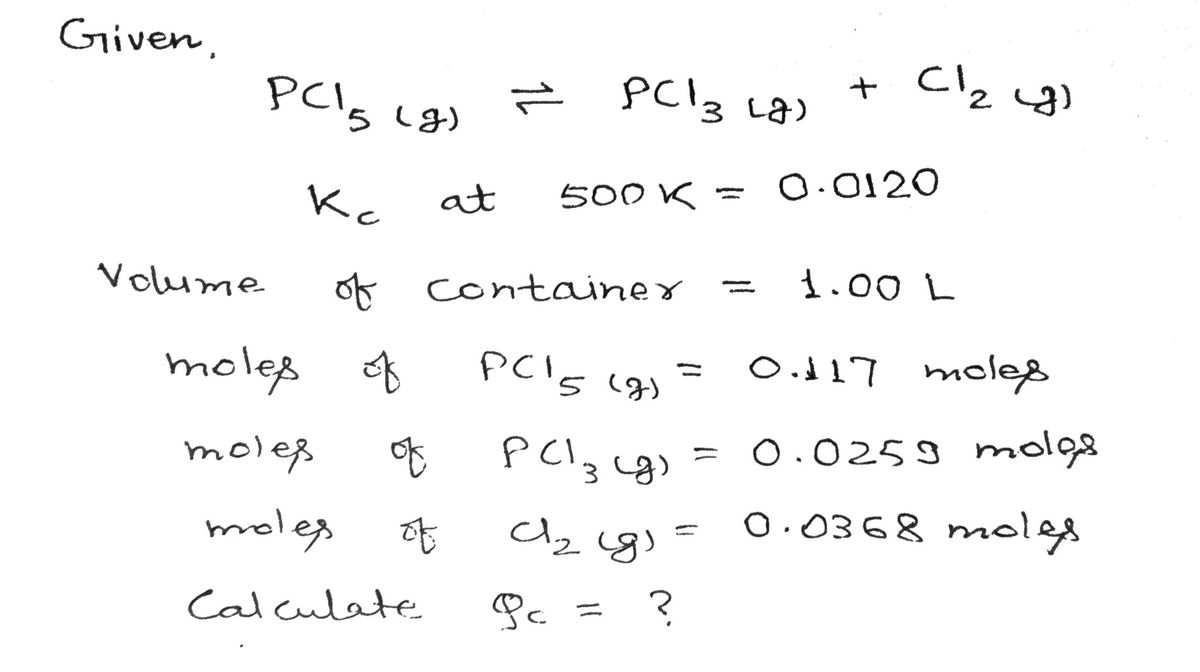 Given,
PCl₅ (g) ⇌ PCl₃ (g) + Cl₂ (g)
Kc at 500 K = 0.0120
Volume of container = 1.00 L
moles of PCl₅ (g) = 0.117 moles
moles of PCl₃ (g) = 0.0259 moles
moles of Cl₂ (g) = 0.0368 moles
Calculate Qc = ?